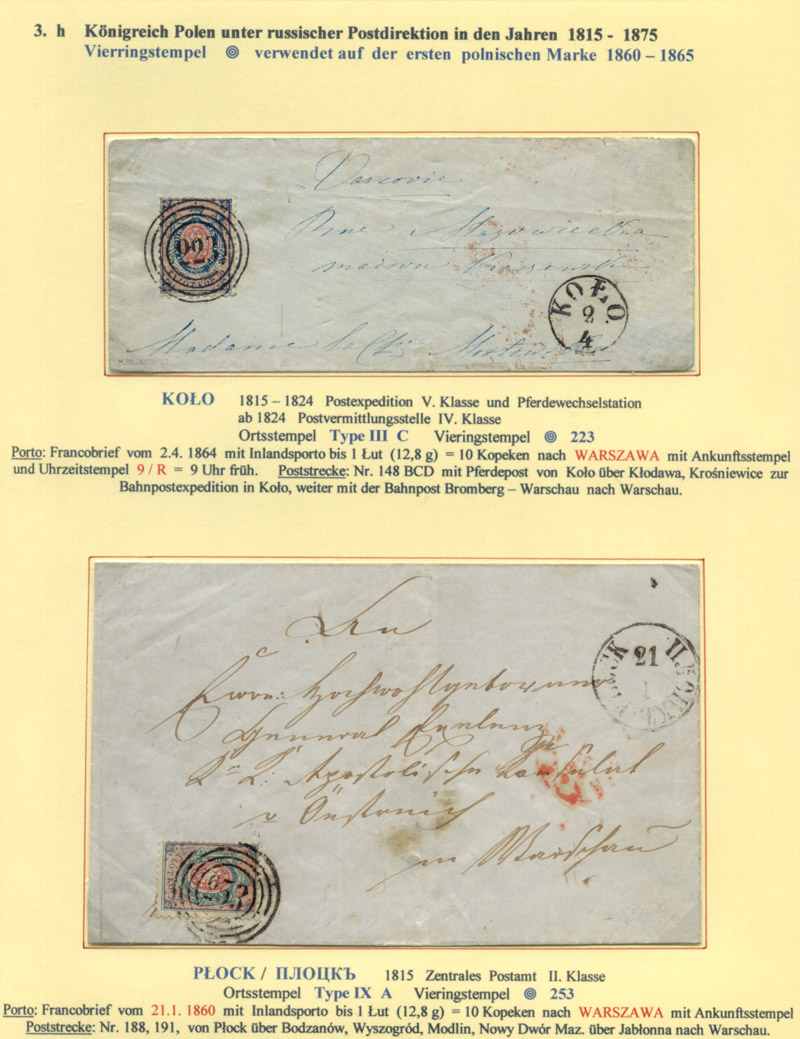 3. h Königreich Polen unter russischer Postdirektion in den Jahren 1815 - 1875
Vierringstempel verwendet auf der ersten polnischen Marke 1860 – 1865
Varsovie
Rue Mazowiecka
maison
KOŁO.
2
4
Madame la
KOŁO 1815 – 1824 Postexpedition V. Klasse und Pferdewechselstation
ab 1824 Postvermittlungsstelle IV. Klasse
Ortsstempel Type III C Vieringstempel 223
Porto: Francobrief vom 2.4. 1864 mit Inlandsporto bis 1 Łut (12,8 g) = 10 Kopeken nach WARSZAWA mit Ankunftsstempel
und Uhrzeitstempel 9 / R = 9 Uhr früh. Poststrecke: Nr. 148 BCD mit Pferdepost von Koło über Kłodawa, Krośniewice zur
Bahnpostexpedition in Koło, weiter mit der Bahnpost Bromberg – Warschau nach Warschau.
An
21
1
Hochwohlgeboren
General
K. K. Apostolische Konsulat
v Östereich
in Warschau
253
PŁOCK / ПЛОЦКЪ 1815 Zentrales Postamt II. Klasse
Ortsstempel Type IX A Vieringstempel 253
Porto: Francobrief vom 21.1. 1860 mit Inlandsporto bis 1 Łut (12,8 g) = 10 Kopeken nach WARSZAWA mit Ankunftsstempel
Poststrecke: Nr. 188, 191, von Płock über Bodzanów, Wyszogród, Modlin, Nowy Dwór Maz. über Jabłonna nach Warschau.